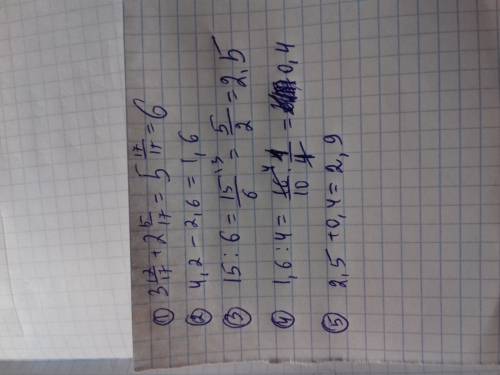 ① 3 12/17 + 2 5/17 = 5 17/17 = 6
② 4,2 - 2,6 = 1,6
③ 15 : 6 = 15/6 = 5/2 = 2,5
④ 1,6 : 4 = 16/10 · 1/4 = 0,4
⑤ 2,5 + 0,4 = 2,9